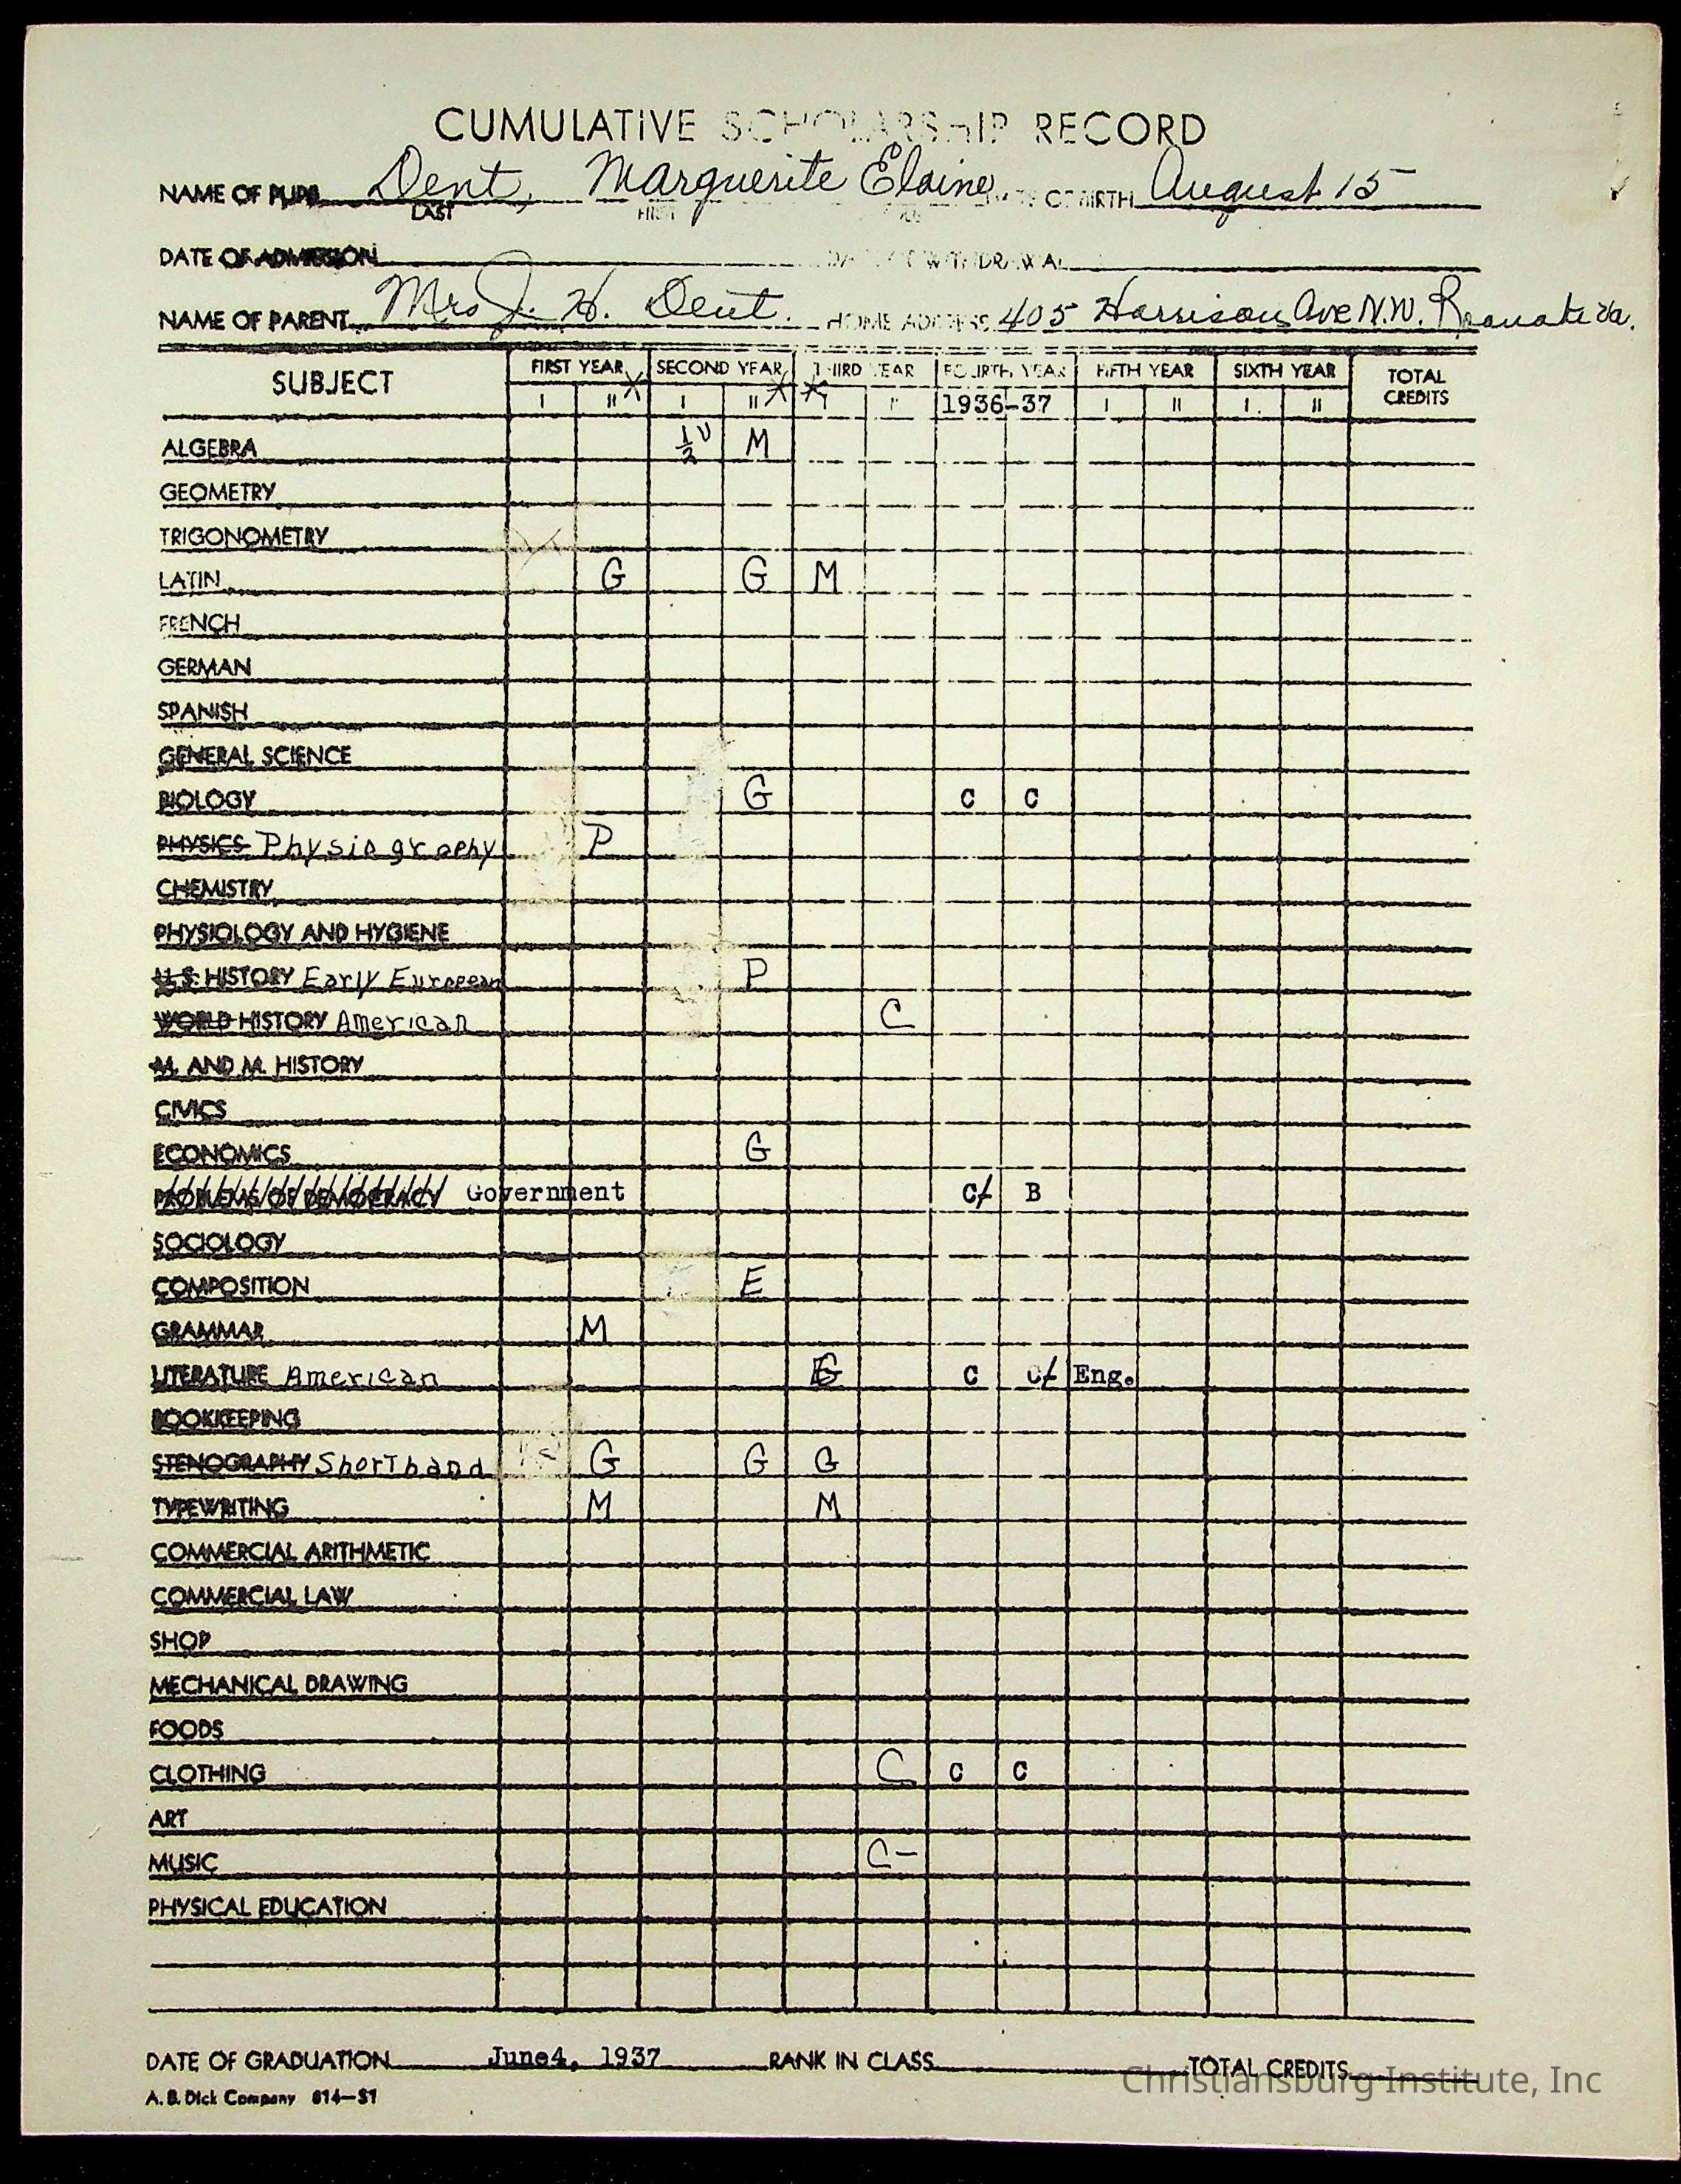 CUMULATIVE SCHOLARSHIP RECORD
NAME OF PUPIL Dent, Marguerite Elaine DATE OF BIRTH August 15
LAST FIRST
DATE OF ADMISSION DATE OF WITHDRAWAL
NAME OF PARENT Mrs J. H. Dent. HOME ADDRESS 405 Harrison Ave N.W. Roanoke Va.
SUBJECT FIRST YEAR SECOND YEAR THIRD YEAR FOURTH YEAR FIFTH YEAR SIXTH YEAR TOTAL CREDITS
I II X I II X X I II 1936-37 I II I II
ALGEBRA 1/2 U M
GEOMETRY
TRIGONOMETRY
LATIN G G M
FRENCH
GERMAN
SPANISH
GENERAL SCIENCE
BIOLOGY G C C
PHYSICS Physiography P
CHEMISTRY
PHYSIOLOGY AND HYGIENE
U.S. HISTORY Early European P
WORLD HISTORY American C
M. AND M. HISTORY
CIVICS
ECONOMICS G
PROBLEMS OF DEMOCRACY Government C/ B
SOCIOLOGY
COMPOSITION E
GRAMMAR M
LITERATURE American G C C/ Eng.
BOOKKEEPING
STENOGRAPHY Shorthand G G G
TYPEWRITING M M
COMMERCIAL ARITHMETIC
COMMERCIAL LAW
SHOP
MECHANICAL DRAWING
FOODS
CLOTHING C C C
ART
MUSIC C-
PHYSICAL EDUCATION
DATE OF GRADUATION June4, 1937 RANK IN CLASS TOTAL CREDITS
Christiansburg Institute, Inc
A. B. Dick Company 814—S1